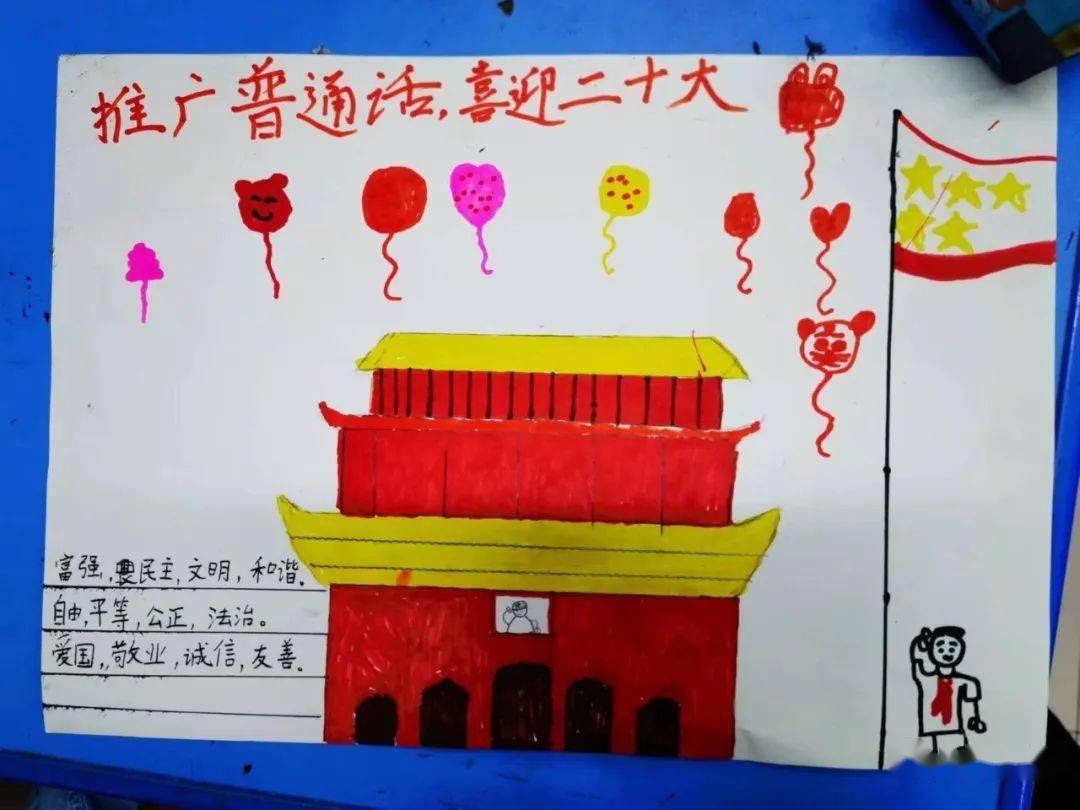 推广普通话,喜迎二十大
富强,民主,文明,和谐.
自由,平等,公正,法治。
爱国,敬业,诚信,友善.